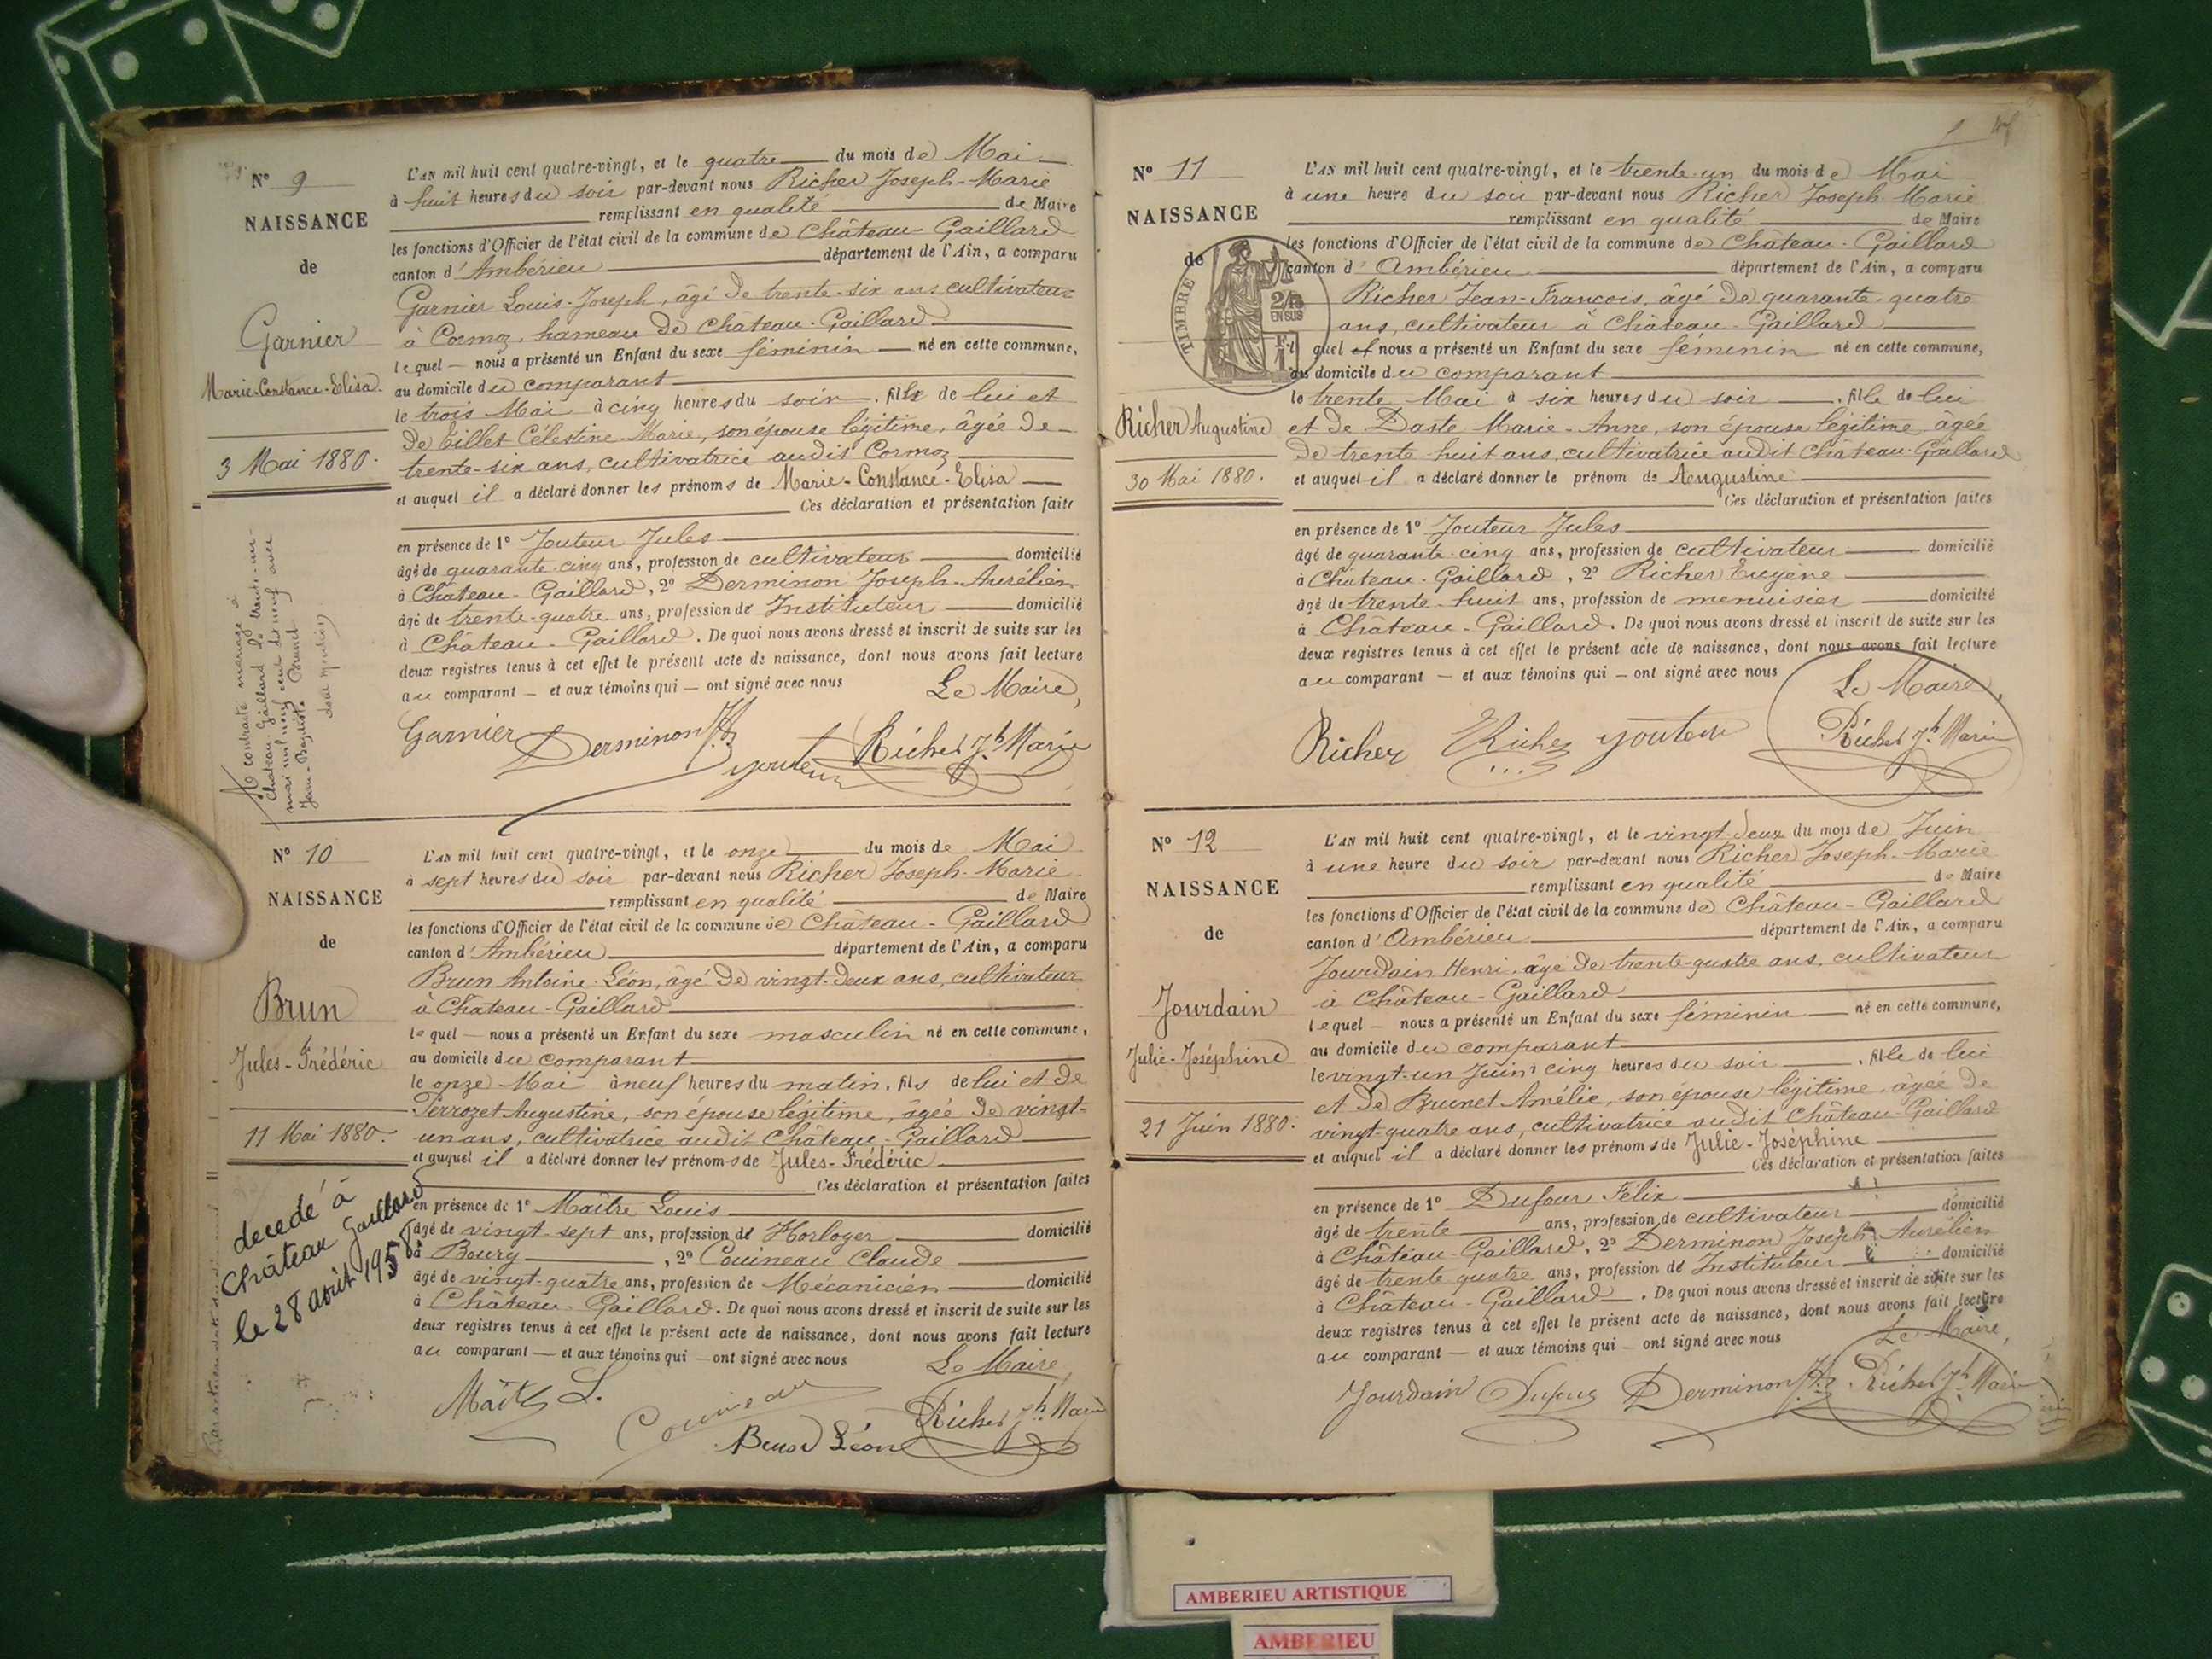 N° 9
NAISSANCE
de
Garnier
Marie-Constance-Elisa
3 Mai 1880.
a contracté mariage à
Château-Gaillard le trente-un
mai mil neuf cent dix neuf avec
Jean-Baptiste Brunet
L'AN mil huit cent quatre-vingt, et le quatre du mois de Mai
à huit heures du soir par-devant nous Richer Joseph-Marie
remplissant en qualité de Maire
les fonctions d'Officier de l'état civil de la commune de Château-Gaillard
canton d'Ambérieu département de l'Ain, a comparu
Garnier Louis-Joseph, âgé de trente-six ans cultivateur
à Cormoz, hameau de Château-Gaillard
lequel nous a présenté un Enfant du sexe féminin né en cette commune,
au domicile du comparant
le trois Mai à cinq heures du soir, fille de lui et
de Tillet Célestine-Marie, son épouse légitime, âgée de
trente-six ans, cultivatrice audit Cormoz
et auquel il a déclaré donner les prénoms de Marie-Constance-Elisa
Ces déclaration et présentation faite
en présence de 1° Jouteur Jules
âgé de quarante-cinq ans, profession de cultivateur domicilié
à Château-Gaillard, 2° Derminon Joseph-Aurélien
âgé de trente-quatre ans, profession de Instituteur domicilié
à Château-Gaillard. De quoi nous avons dressé et inscrit de suite sur les
deux registres tenus à cet effet le présent acte de naissance, dont nous avons fait lecture
au comparant et aux témoins qui ont signé avec nous
Le Maire,
Garnier Derminon Jouteur Richer Jh Marie
N° 10
NAISSANCE
de
Brun
Jules-Frédéric
11 Mai 1880.
decedé à
Château Gaillard
le 28 août 1958
L'AN mil huit cent quatre-vingt, et le onze du mois de Mai
à sept heures du soir par-devant nous Richer Joseph-Marie
remplissant en qualité de Maire
les fonctions d'Officier de l'état civil de la commune de Château-Gaillard
canton d'Ambérieu département de l'Ain, a comparu
Brun Antoine-Léon, âgé de vingt-deux ans, cultivateur
à Château-Gaillard
lequel nous a présenté un Enfant du sexe masculin né en cette commune,
au domicile du comparant
le onze Mai à neuf heures du matin, fils de lui et de
Perrozet Augustine, son épouse légitime, âgée de vingt-
un ans, cultivatrice audit Château-Gaillard
et auquel il a déclaré donner les prénoms de Jules-Frédéric
Ces déclaration et présentation faites
en présence de 1° Maître Louis
âgé de vingt-sept ans, profession de Horloger domicilié
à Bourg, 2° Couineau Claude
âgé de vingt-quatre ans, profession de Mécanicien domicilié
à Château-Gaillard. De quoi nous avons dressé et inscrit de suite sur les
deux registres tenus à cet effet le présent acte de naissance, dont nous avons fait lecture
au comparant et aux témoins qui ont signé avec nous
Le Maire,
Maître L. Couineau Richer Jh Marie
Brun Léon
N° 11
NAISSANCE
de
Richer Augustine
30 Mai 1880.
TIMBRE
2/10
EN SUS
L'AN mil huit cent quatre-vingt, et le trente-un du mois de Mai
à une heure du soir par-devant nous Richer Joseph Marie
remplissant en qualité de Maire
les fonctions d'Officier de l'état civil de la commune de Château-Gaillard
canton d'Ambérieu département de l'Ain, a comparu
Richer Jean-François, âgé de quarante-quatre
ans, cultivateur à Château-Gaillard
quel nous a présenté un Enfant du sexe féminin né en cette commune,
au domicile du comparant
le trente Mai à six heures du soir, fille de lui
et de Dasté Marie-Anne, son épouse légitime, âgée
de trente-huit ans, cultivatrice audit Château-Gaillard
et auquel il a déclaré donner le prénom de Augustine
Ces déclaration et présentation faites
en présence de 1° Jouteur Jules
âgé de quarante-cinq ans, profession de cultivateur domicilié
à Château-Gaillard, 2° Richer Eugène
âgé de trente-huit ans, profession de menuisier domicilié
à Château-Gaillard. De quoi nous avons dressé et inscrit de suite sur les
deux registres tenus à cet effet le présent acte de naissance, dont nous avons fait lecture
au comparant et aux témoins qui ont signé avec nous
Le Maire,
Richer E Richer Jouteur Richer Jh Marie
N° 12
NAISSANCE
de
Jourdain
Julie-Joséphine
21 Juin 1880.
L'AN mil huit cent quatre-vingt, et le vingt-deux du mois de Juin
à une heure du soir par-devant nous Richer Joseph-Marie
remplissant en qualité de Maire
les fonctions d'Officier de l'état civil de la commune de Château-Gaillard
canton d'Ambérieu département de l'Ain, a comparu
Jourdain Henri, âgé de trente-quatre ans, cultivateur
à Château-Gaillard
lequel nous a présenté un Enfant du sexe féminin né en cette commune,
au domicile du comparant
le vingt-un Juin à cinq heures du soir, fille de lui
et de Brunet Amélie, son épouse légitime, âgée de
vingt-quatre ans, cultivatrice audit Château-Gaillard
et auquel il a déclaré donner les prénoms de Julie-Joséphine
Ces déclaration et présentation faites
en présence de 1° Dufour Félix
âgé de trente ans, profession de cultivateur domicilié
à Château-Gaillard, 2° Derminon Joseph Aurélien
âgé de trente quatre ans, profession de Instituteur domicilié
à Château-Gaillard. De quoi nous avons dressé et inscrit de suite sur les
deux registres tenus à cet effet le présent acte de naissance, dont nous avons fait lecture
au comparant et aux témoins qui ont signé avec nous
Le Maire,
Jourdain Dufour Derminon Richer Jh Marie
AMBERIEU ARTISTIQUE
AMBERIEU